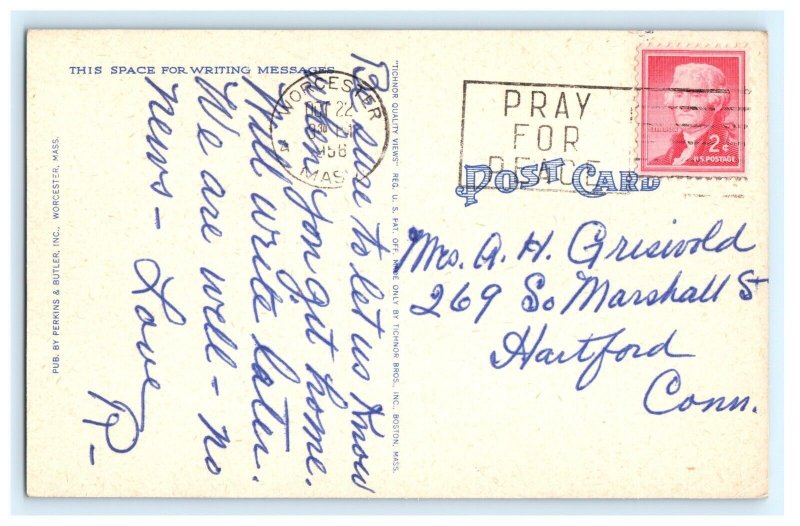 THIS SPACE FOR WRITING MESSAGES
Be sure to let us know
when you git home.
Will write later.
We are well - no
news - Love
P-
PUB. BY PERKINS & BUTLER, INC., WORCESTER, MASS.
"TICHNOR QUALITY VIEWS" REG. U. S. PAT. OFF. MADE ONLY BY TICHNOR BROS., INC., BOSTON, MASS.
WORCESTER
OCT 22
MASS
PRAY
FOR
PEACE
2¢
U.S. POSTAGE
POST CARD
Mrs. A. H. Griswold
269 So Marshall St
Hartford
Conn.